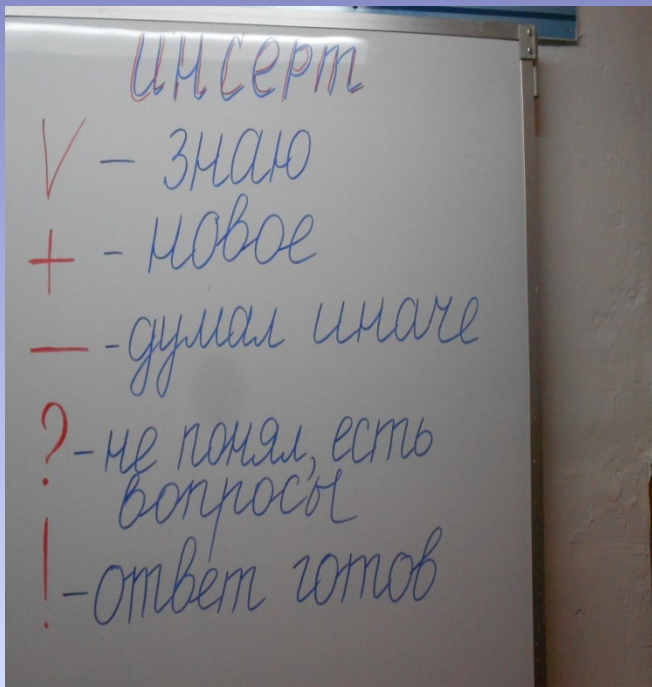 инсерт
V – знаю
+ – новое
– – думал иначе
? – не понял, есть
вопросы
! – ответ готов